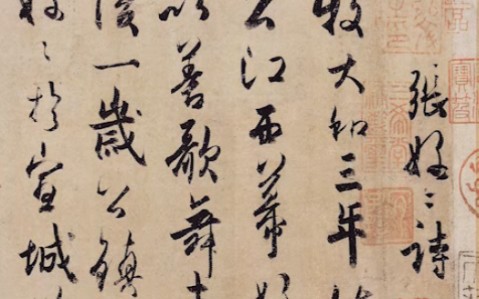 張好〻詩
牧大和三年
公江西幕好
以善歌舞
後一歲公鎮
好〻於宣城